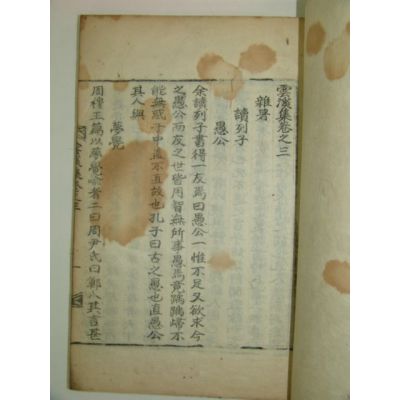 雲溪集卷之三
雜著
讀列子
愚公
余讀列子書得一友焉曰愚公一惟不足又欲求今
之愚公而友之世皆用智無所事愚焉竟踽踽歸不
能無惑于中直不直故也孔子曰古之愚也直愚公
其人與
夢覺
周穆王篇以夢覺喻者二曰周尹氏曰鄭人其言甚